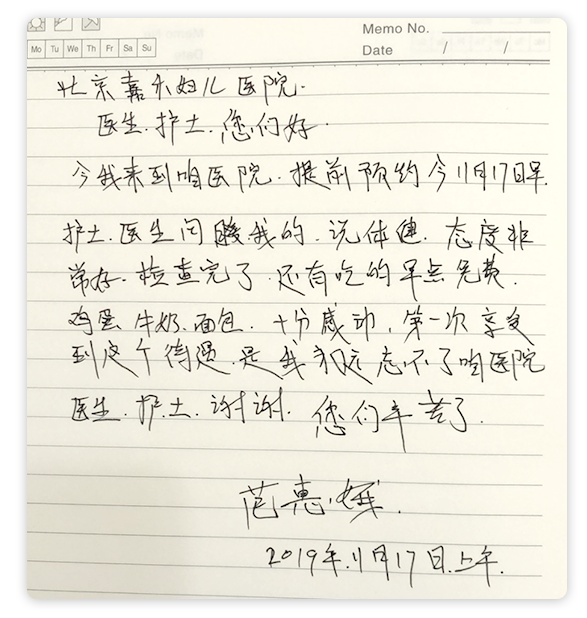 Memo No.
Mo Tu We Th Fr Sa Su
Date / /
北京嘉禾妇儿医院.
医生.护士.您们好.
今我来到咱医院.提前预约今11月17日早.
护士.医生问我的.说体健.态度非
常好.检查完了.还有吃的早点免费.
鸡蛋.牛奶.面包.十分感动.第一次享受
到这个待遇.是我永远忘不了咱医院
医生.护士.谢谢.您们辛苦了.
范惠娥.
2019年.11月17日.上午.